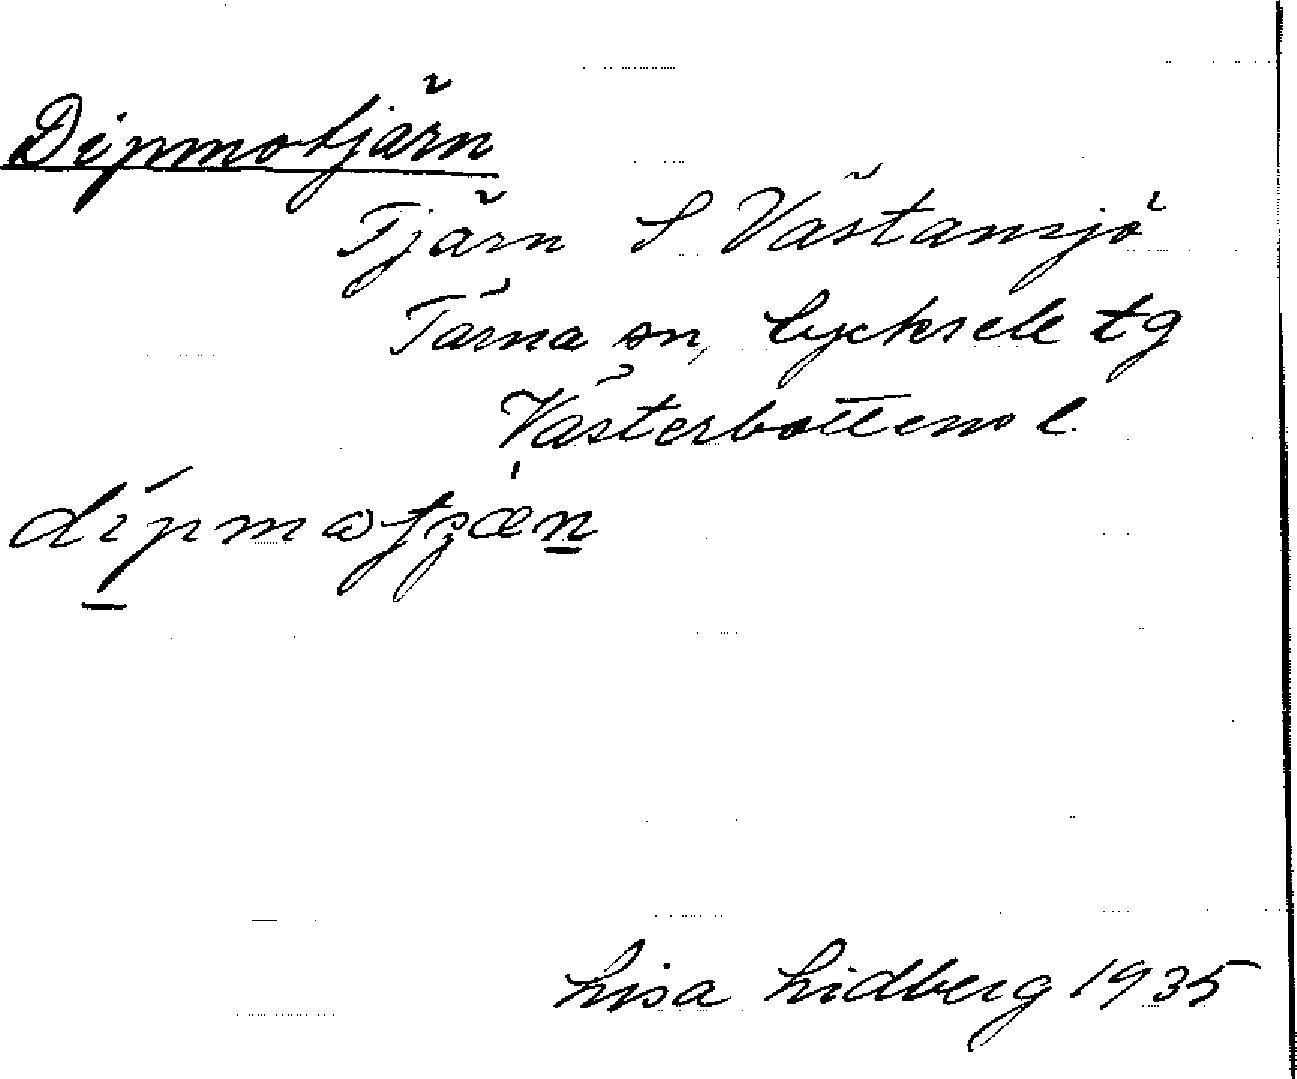 Dipmotjärn
Tjärn S Västansjö
Tärna sn, Lycksele tg
Västerbottens l.
dipmatjæn
Lisa Lidberg 1935